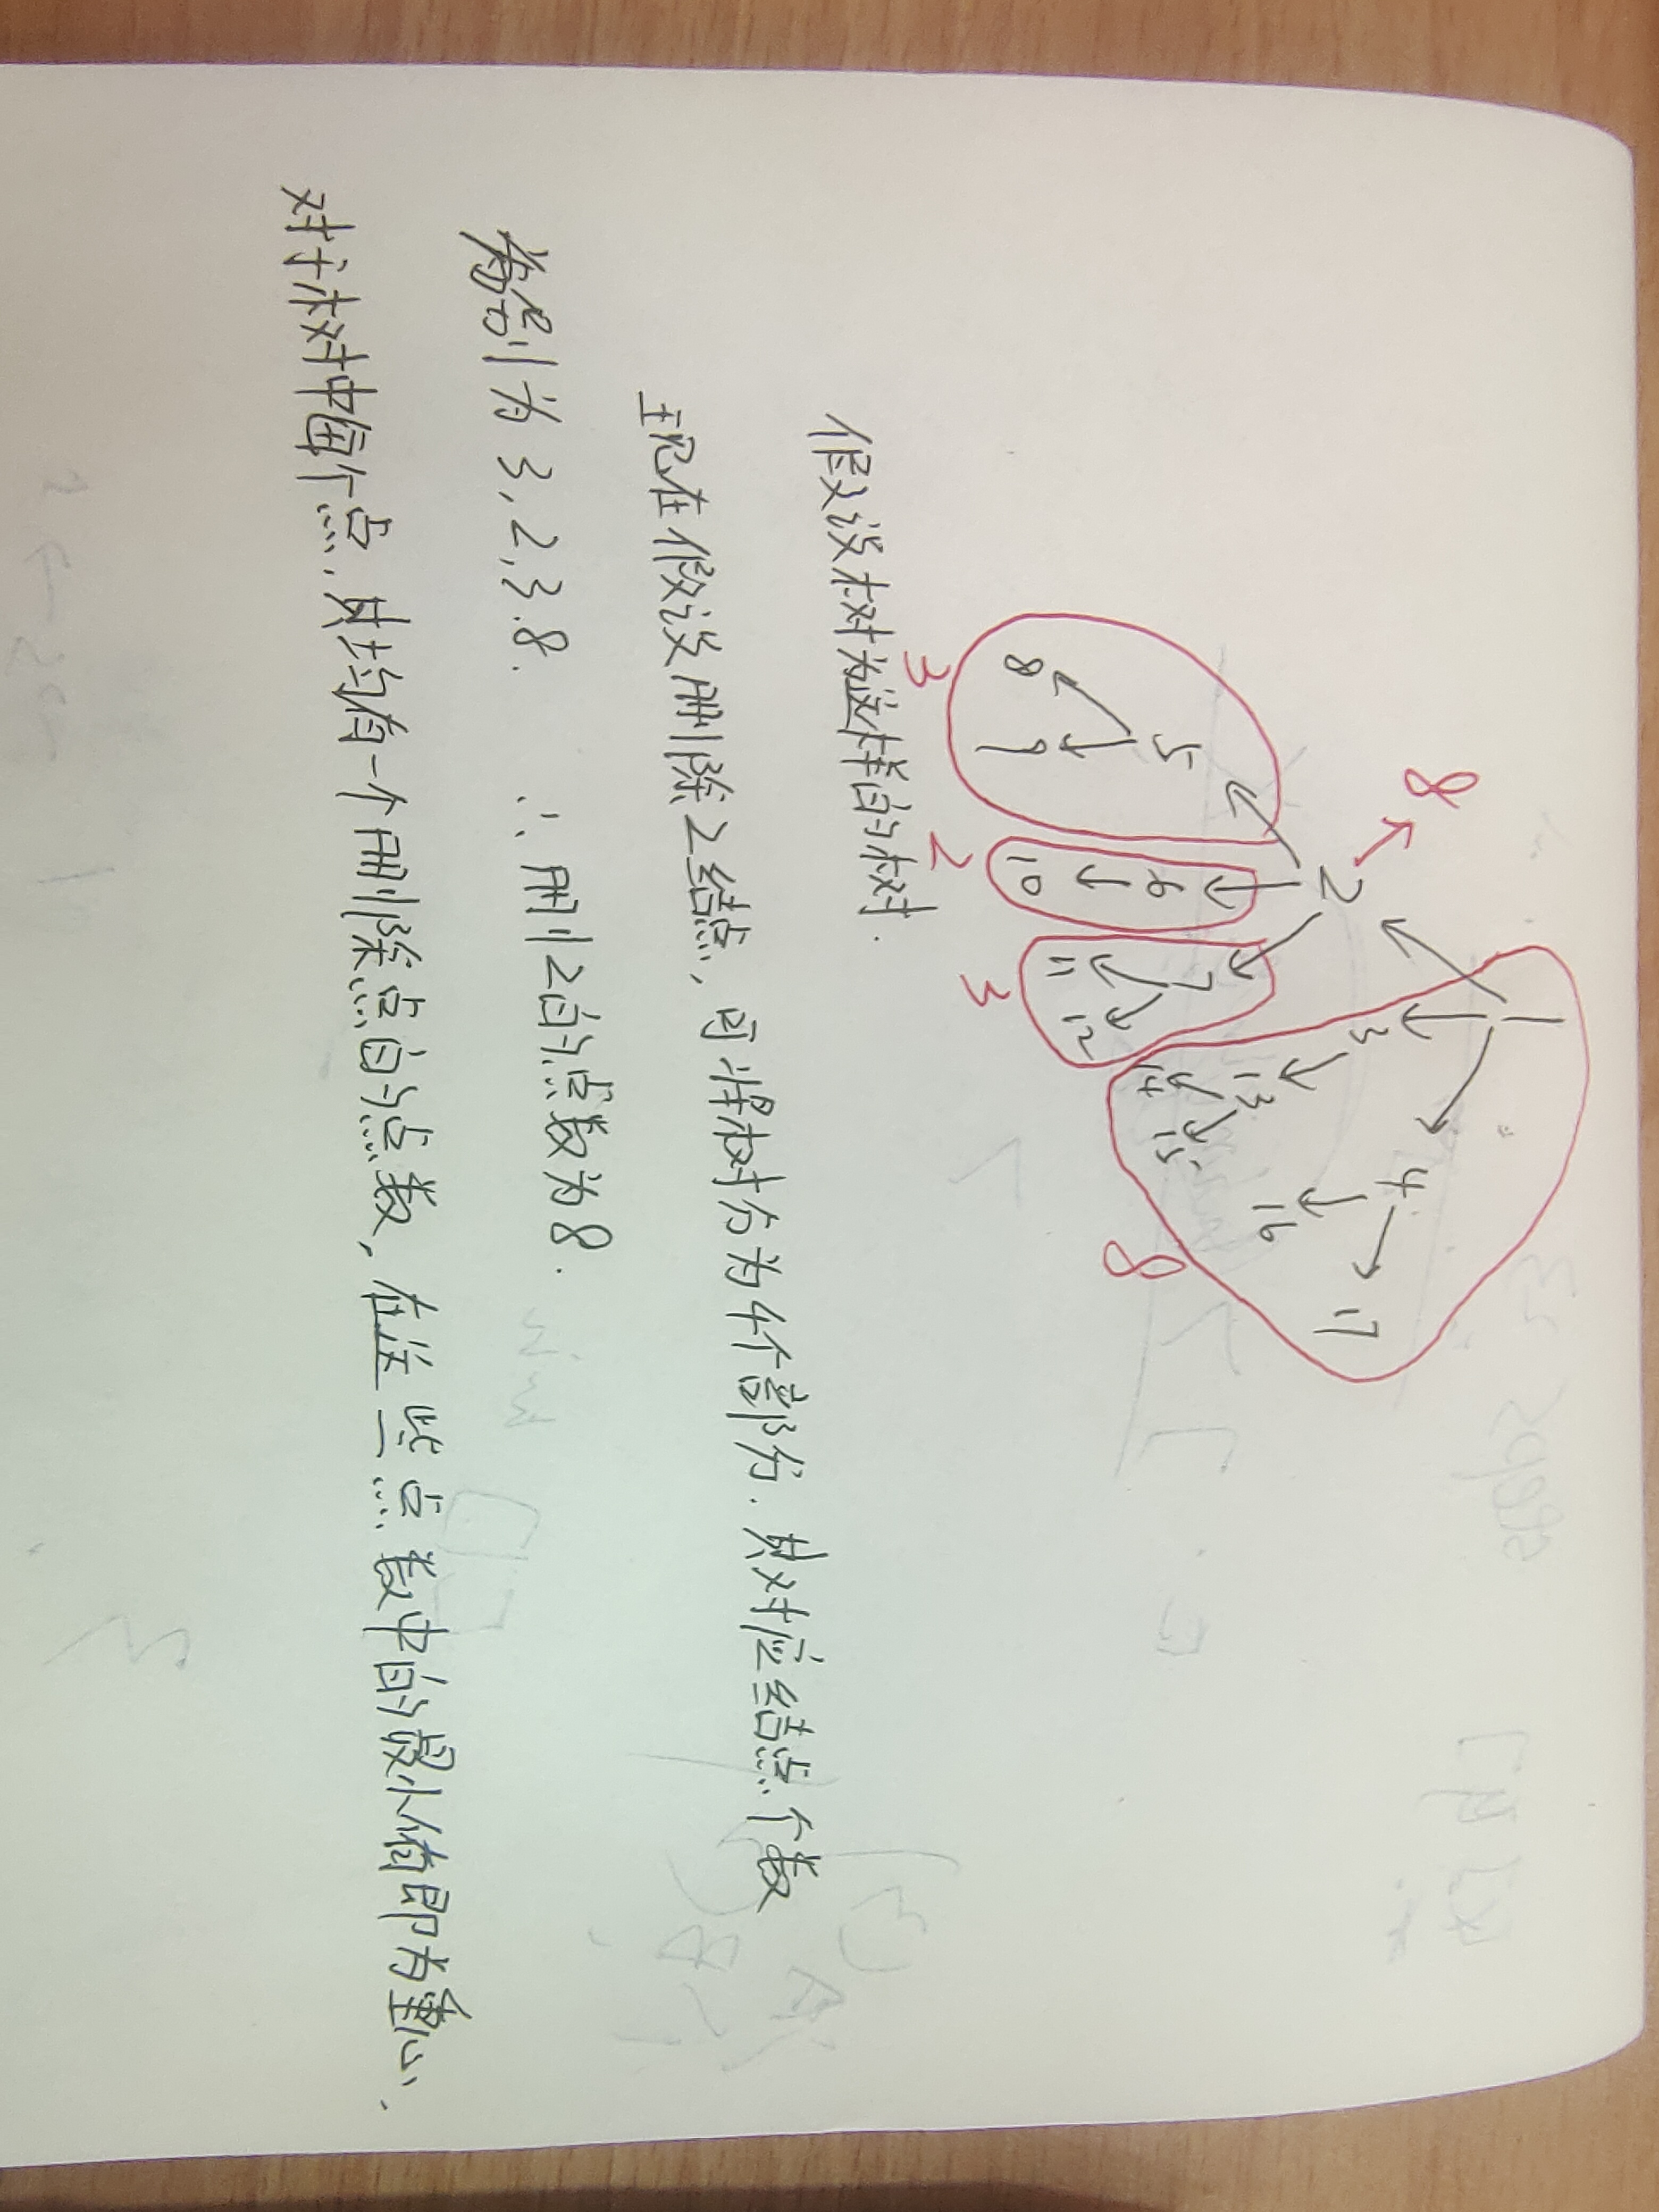 1
8
2
3
4
5
6
7
13
16
17
8
9
10
11
12
14
15
3
2
3
8
假设树为这样的树.
现在假设删除2结点,可将树分为4个部分.其对应结点个数
分别为3,2,3.8. ∴删2的点数为8.
对于树中每个点,其均有一个删除点的点数,在这些点数中的最小值即为重心.